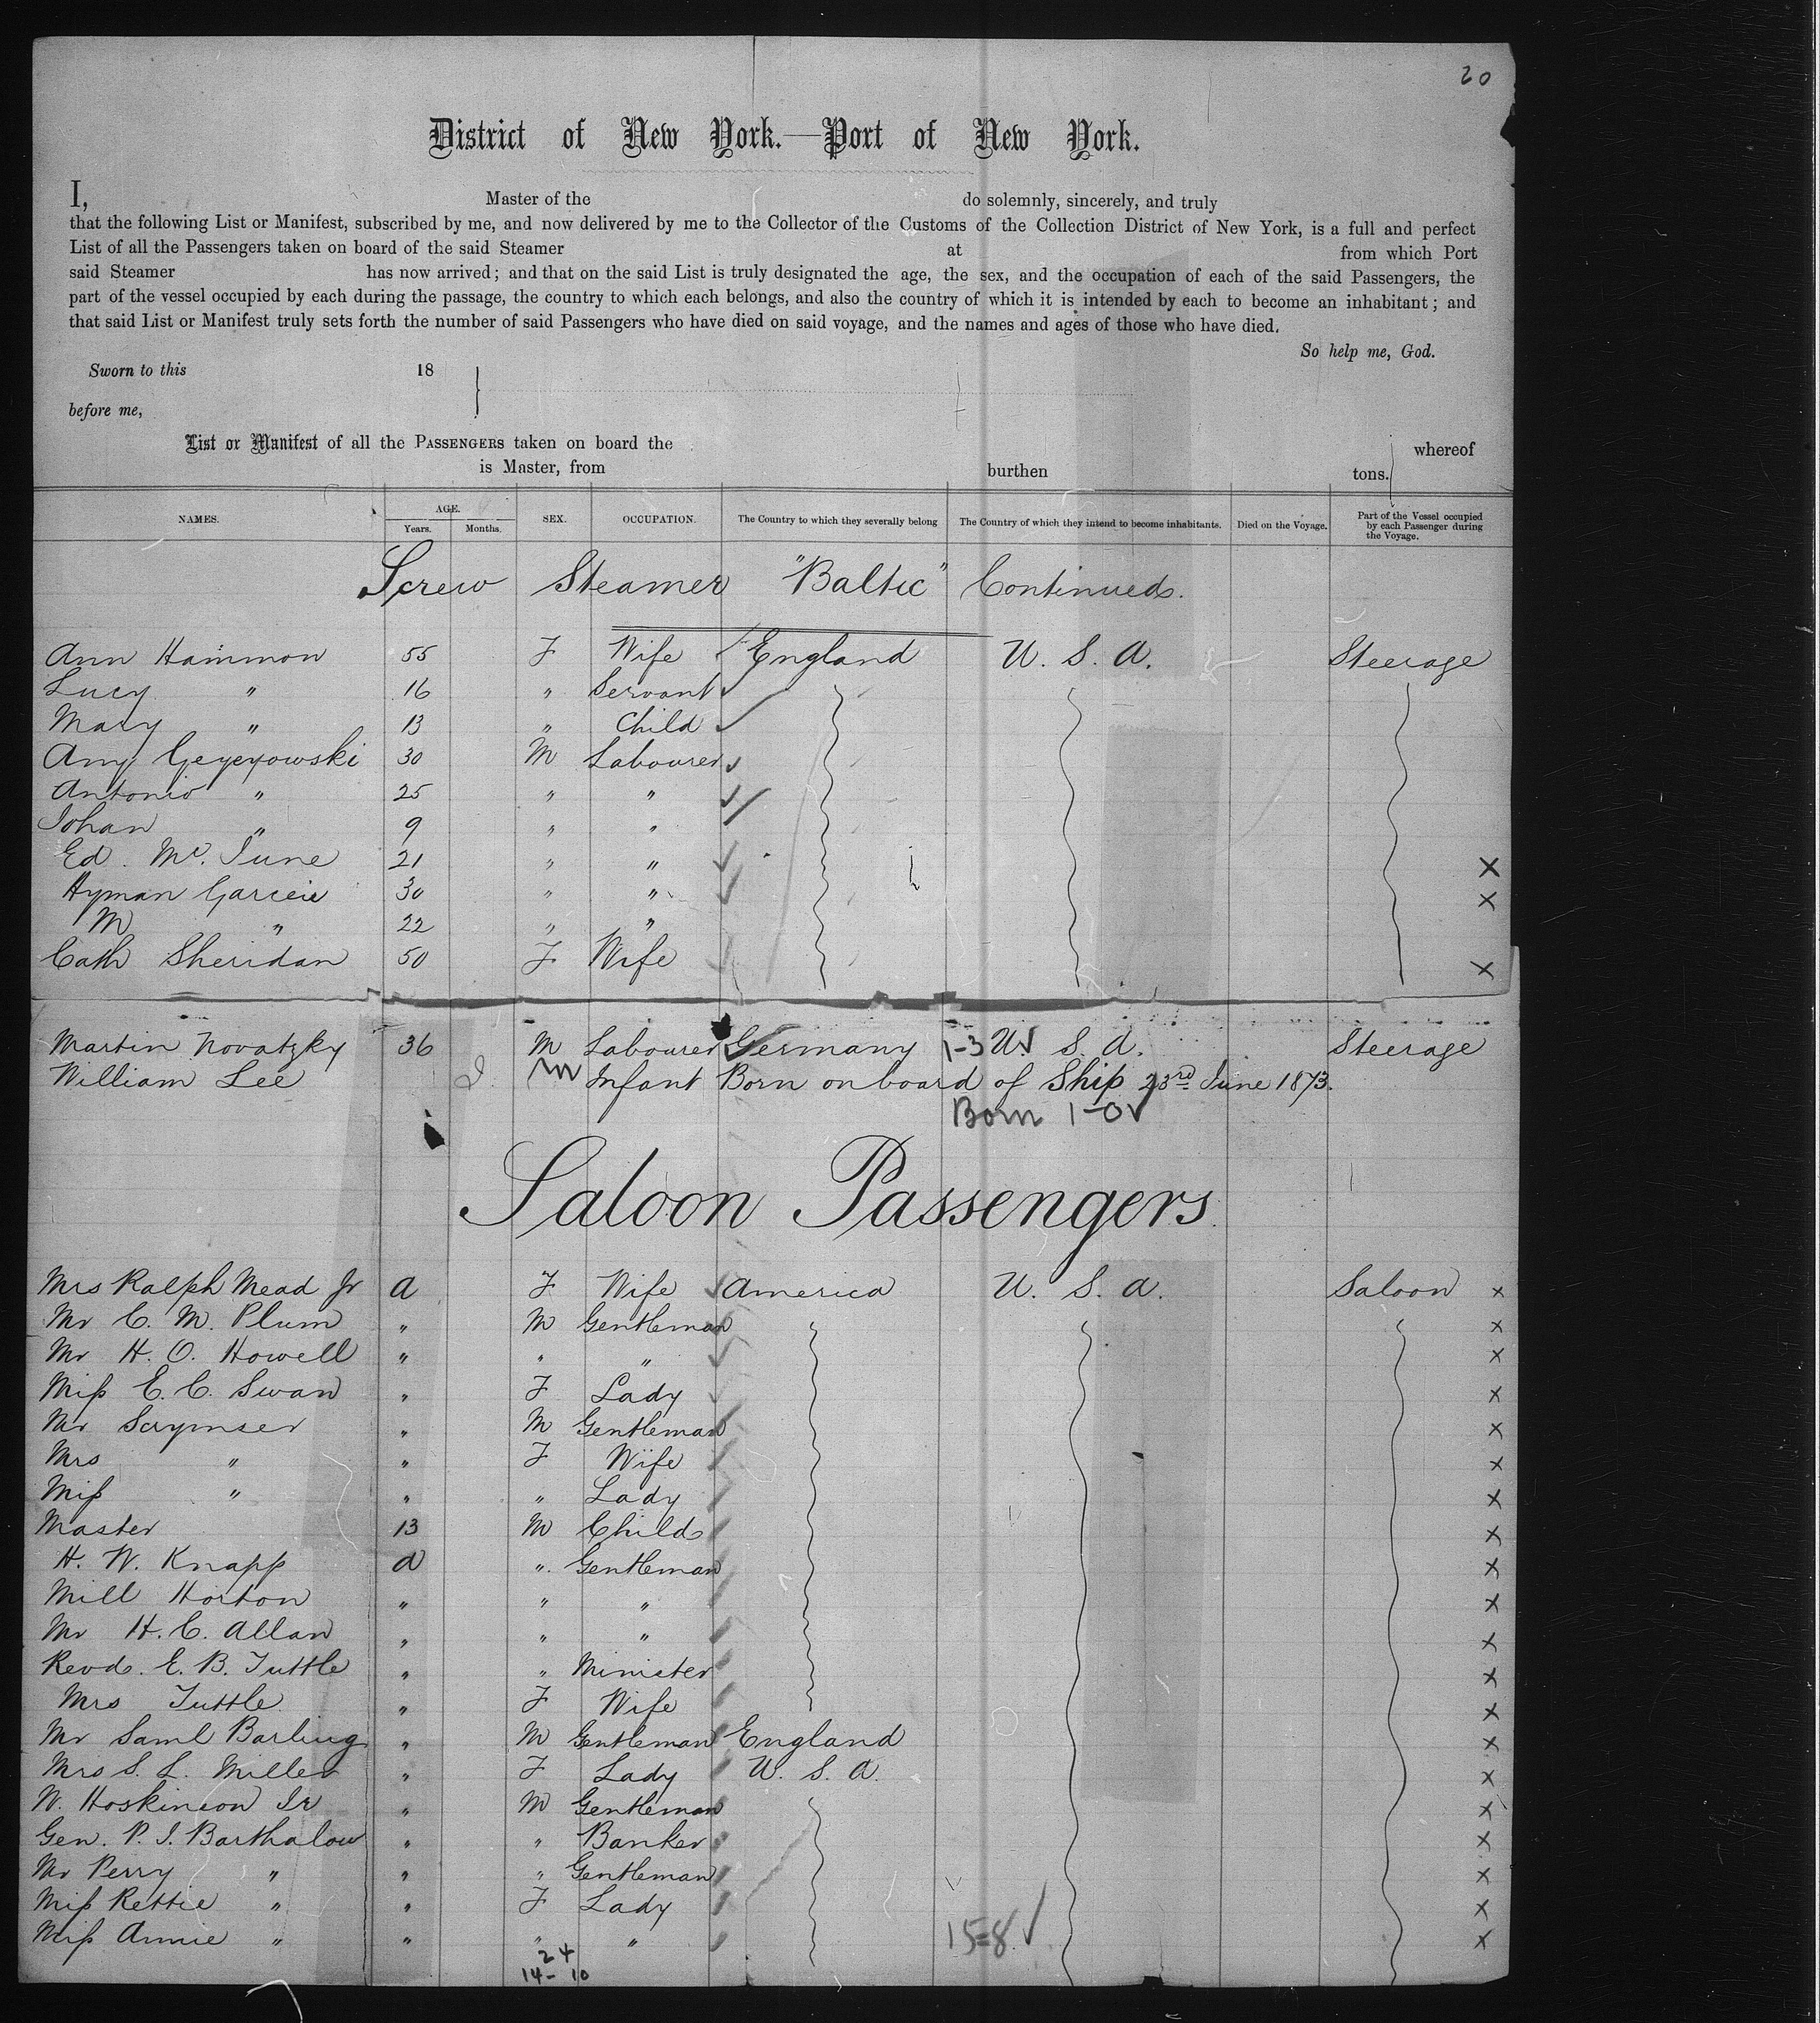 20
District of New York.—Port of New York.
I, Master of the do solemnly, sincerely, and truly
that the following List or Manifest, subscribed by me, and now delivered by me to the Collector of the Customs of the Collection District of New York, is a full and perfect
List of all the Passengers taken on board of the said Steamer at from which Port
said Steamer has now arrived; and that on the said List is truly designated the age, the sex, and the occupation of each of the said Passengers, the
part of the vessel occupied by each during the passage, the country to which each belongs, and also the country of which it is intended by each to become an inhabitant; and
that said List or Manifest truly sets forth the number of said Passengers who have died on said voyage, and the names and ages of those who have died.
So help me, God.
Sworn to this 18
before me,
List or Manifest of all the PASSENGERS taken on board the whereof
is Master, from burthen tons.
NAMES. AGE. Years. Months. SEX. OCCUPATION. The Country to which they severally belong The Country of which they intend to become inhabitants. Died on the Voyage. Part of the Vessel occupied by each Passenger during the Voyage.
Screw Steamer "Baltic" Continued.
Ann Hammon 55 F Wife England U. S. A. Steerage
Lucy " 16 " Servant
Mary " 13 " Child
30 M Labourer
Antonio " 25 " "
Johan " 9 " "
Ed. Mc. June 21 " " x
Hyman Garcein 30 " " x
M " 22 " "
Cath Sheridan 50 F Wife x
Martin Novatzky 36 M Labourer Germany 1-3 U. S. A. Steerage
William Lee M Infant Born on board of Ship 23rd June 1873.
Born 1-0
Saloon Passengers.
Mrs Ralph Mead Jr A F Wife America U. S. A. Saloon x
Mr C. M. Plum " M Gentleman x
Mr H. O. Howell " " " x
Miss E. C. Swan " F Lady x
Mr Scrymser " M Gentleman x
Mrs " " F Wife x
Miss " " " Lady x
Master 13 M Child x
H. W. Knapp A " Gentleman x
Mill Horton " " " x
Mr H. C. Allan " " " x
Revd. E. B. Tuttle " " Minister x
Mrs Tuttle " F Wife x
Mr Saml Barling " M Gentleman England x
Mrs S. L. Miller " F Lady U. S. A. x
W. Hoskinson Jr " M Gentleman x
Gen. P. J. Barthalow " " Banker x
Mr Perry " " " Gentleman x
Miss Rettie " " F Lady x
Miss Annie " " " " 15=8 x
24
14-10